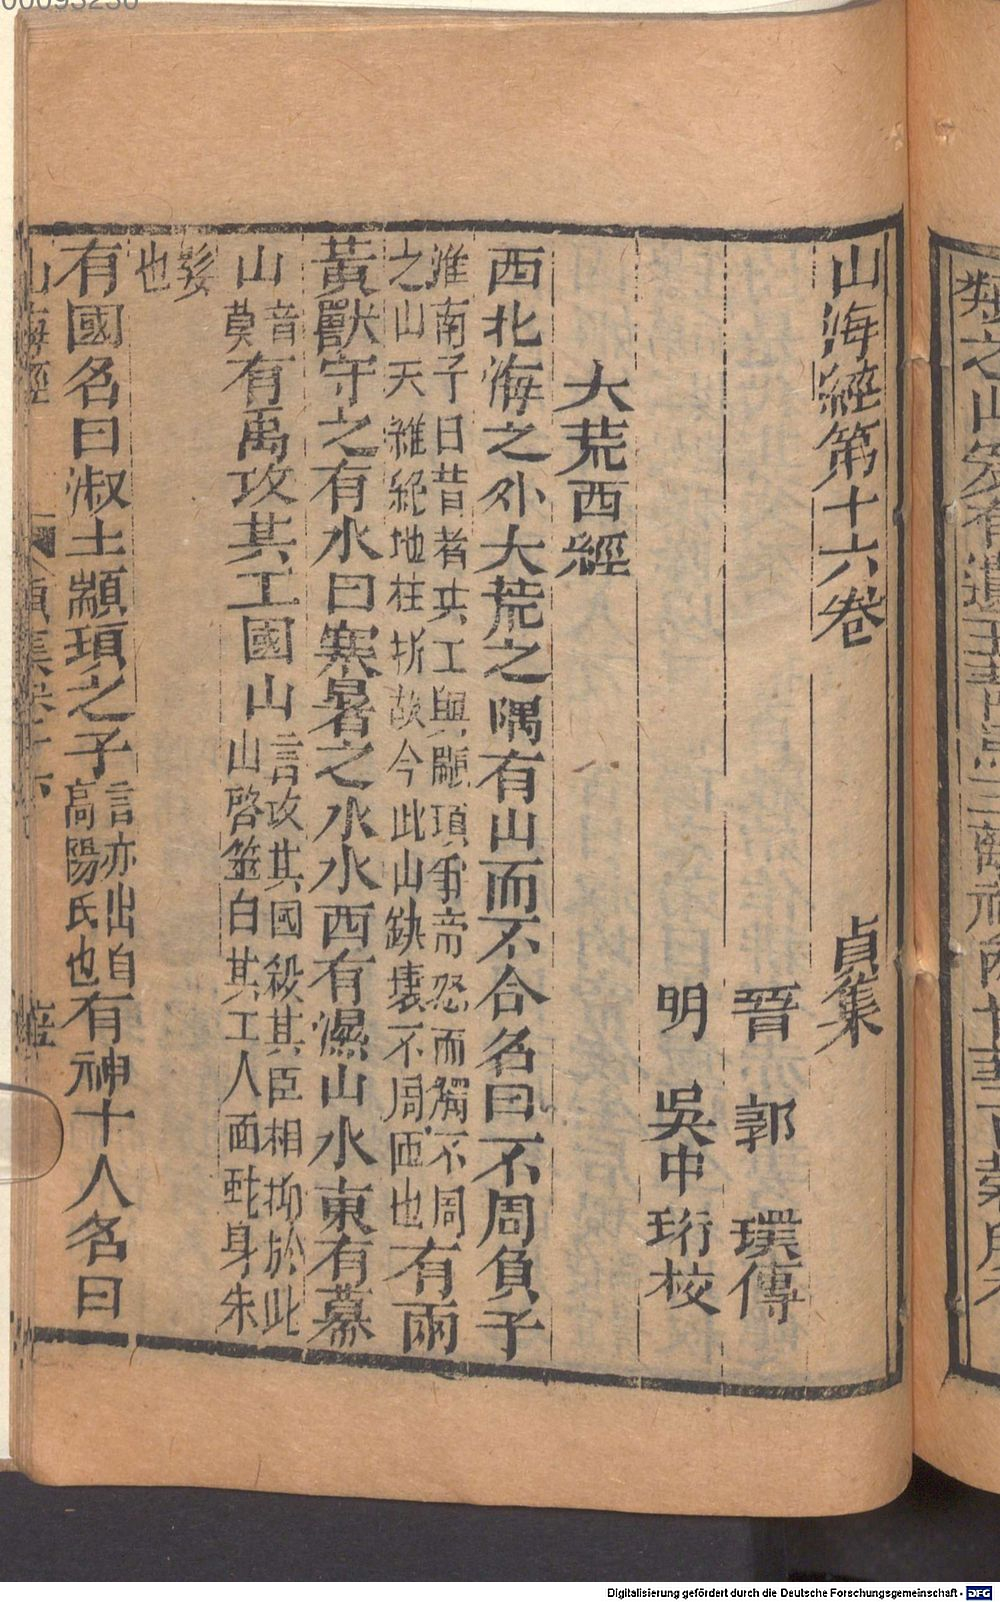 山海經第十六卷 貞集
晉 郭 璞傳
明 吳中珩校
大荒西經
西北海之外大荒之隅有山而不合名曰不周負子
淮南子曰昔者共工與顓頊爭帝怒而觸不周
之山天維絕地柱折故今此山缺壞不周匝也有兩
黃獸守之有水曰寒暑之水水西有濕山水東有幕
山音莫有禹攻共工國山言攻其國殺其臣相抑於此
山啓筮曰共工人面虵身朱
髮
也
有國名曰淑土顓頊之子言亦出自
高陽氏也有神十人名曰
山海經 貞集卷十六
Digitalisierung gefördert durch die Deutsche Forschungsgemeinschaft - DFG